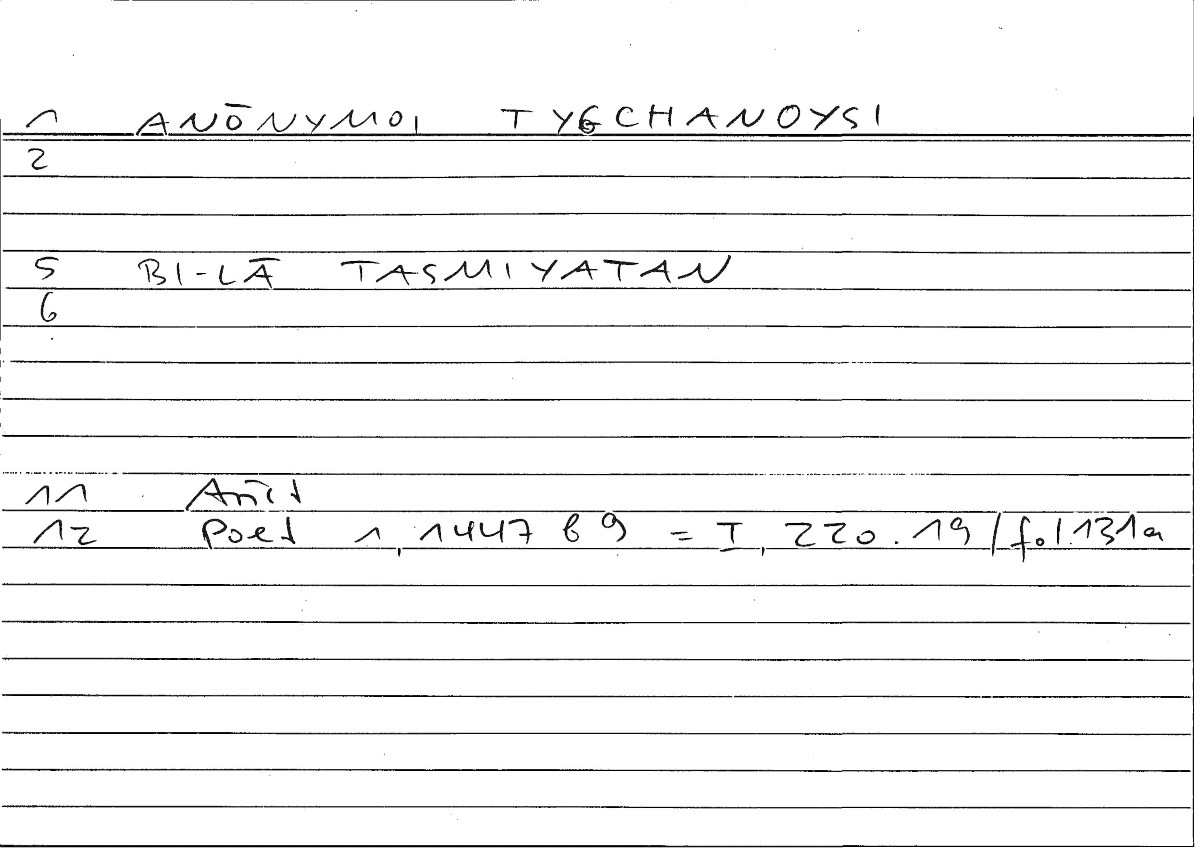 1 ANŌNYMOI TYGCHANOYSI
2
5 BI-LĀ TASMIYATAN
6
11 Arist
12 Poet 1, 1447 b 9 = I, 220.19 / fol. 131a